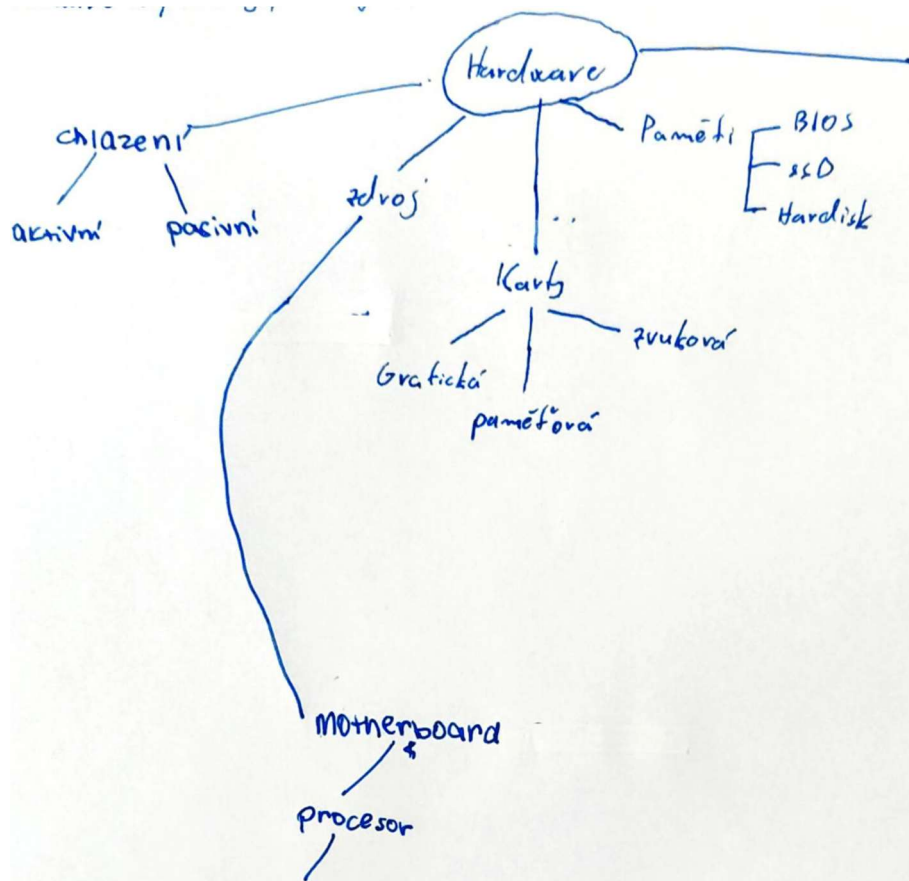 Hardware
chlazení
aktivní
pasivní
zdroj
Paměti
BIOS
SSD
Hardisk
Karty
Grafická
paměťová
zvuková
Motherboard
procesor